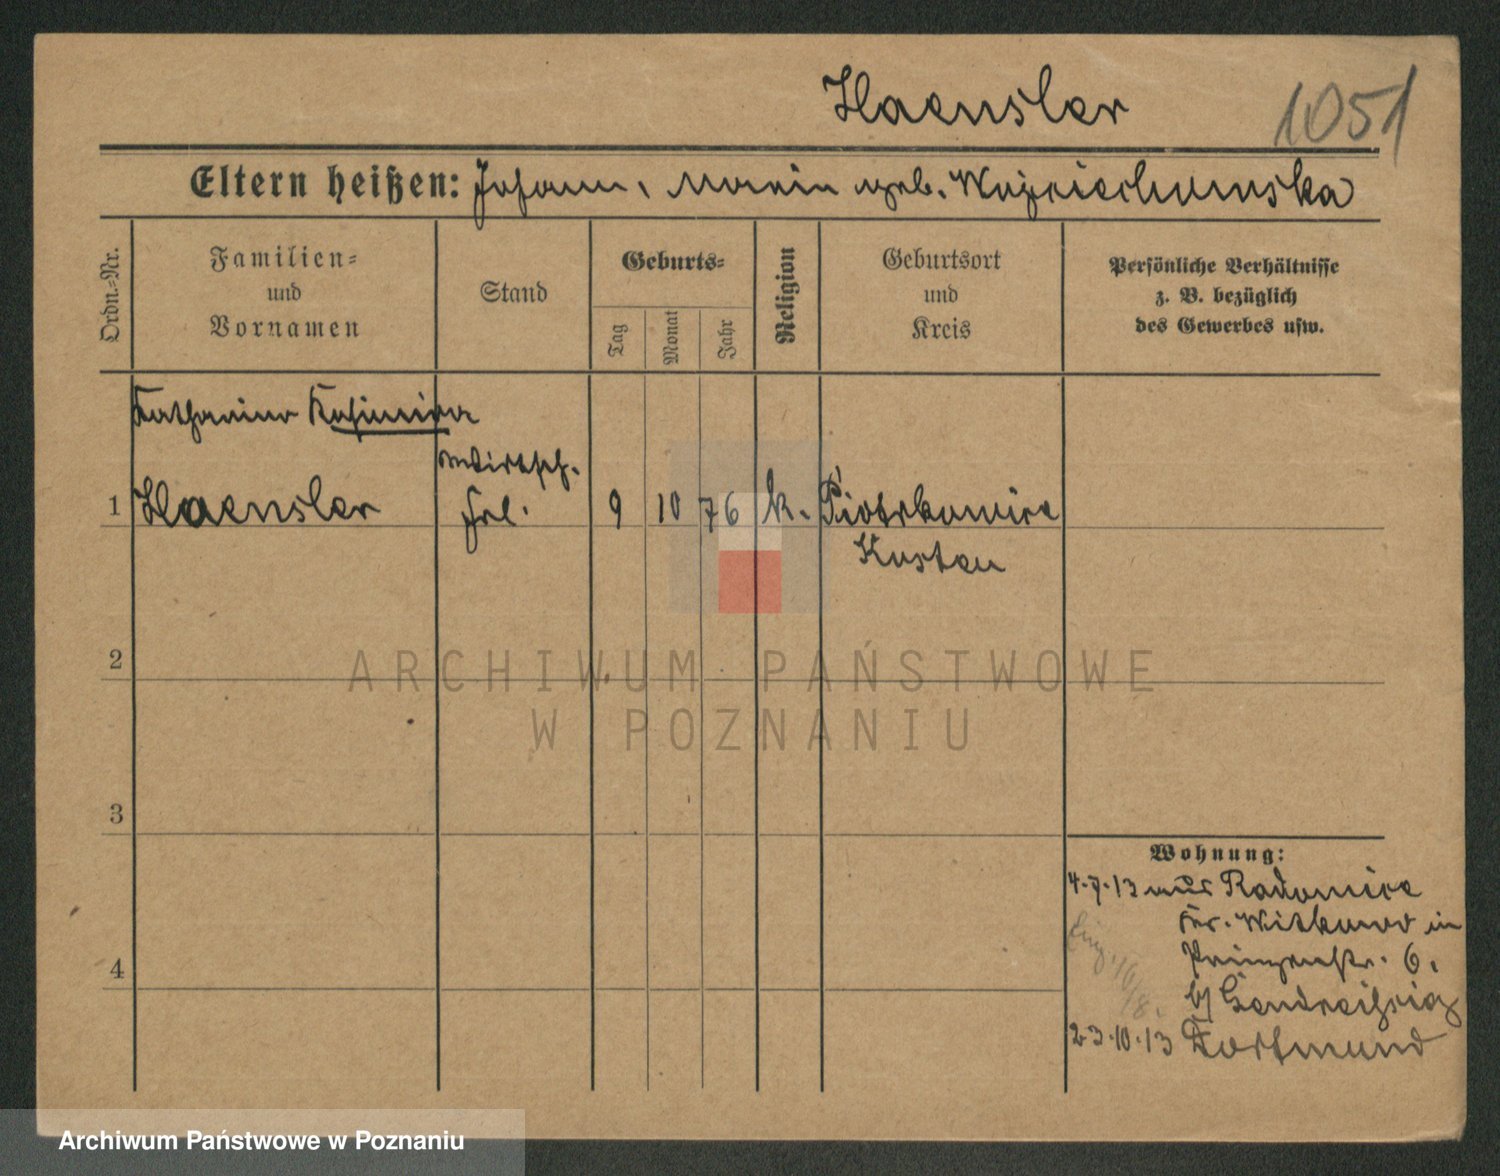 Haensler 1051
Eltern heißen: Johann, Maria geb. Wojciechowska
Ordn.-Nr.
Familien-
und
Vornamen
Stand
Geburts-
Tag
Monat
Jahr
Religion
Geburtsort
und
Kreis
Persönliche Verhältnisse
z. B. bezüglich
des Gewerbes usw.
Katharina Kasimira
Wirtsch.
1 Haensler Frl. 9 10 76 k. Piotrkowice
Kosten
2
ARCHIWUM PAŃSTWOWE
W POZNANIU
3
Wohnung:
4.7.13 aus Radomice
Kr. Witkowo in
4
Prinzenstr. 6.
b/
23.10.13 Dortmund
Archiwum Państwowe w Poznaniu